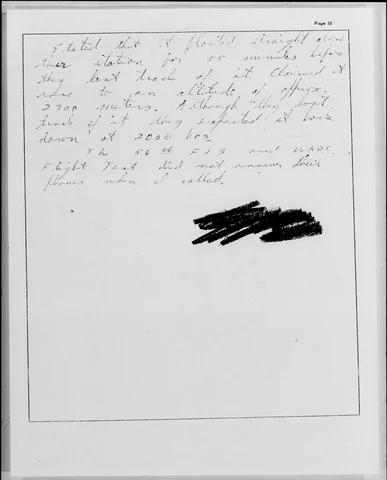 Page 10
Stated that it floated straight over
their station for 05 minutes before
they lost track of it. Claimed it
rose to an altitude of approx.
2700 meters. Although they lost
track of it they expected it
down at 2030 hrs.
The 56th FIS and WADC
Flight Test did not answer their
phones when I called.